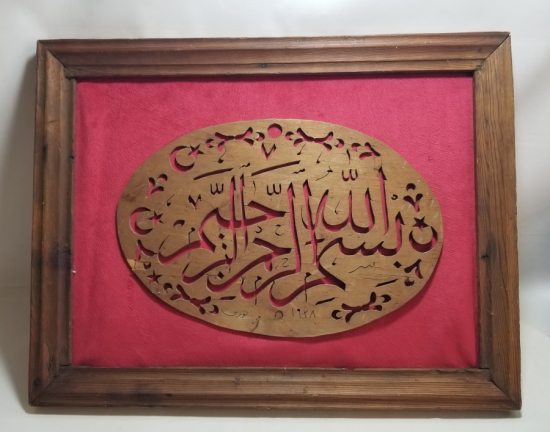 بسم الله الرحمن الرحيم
١٦٢٨